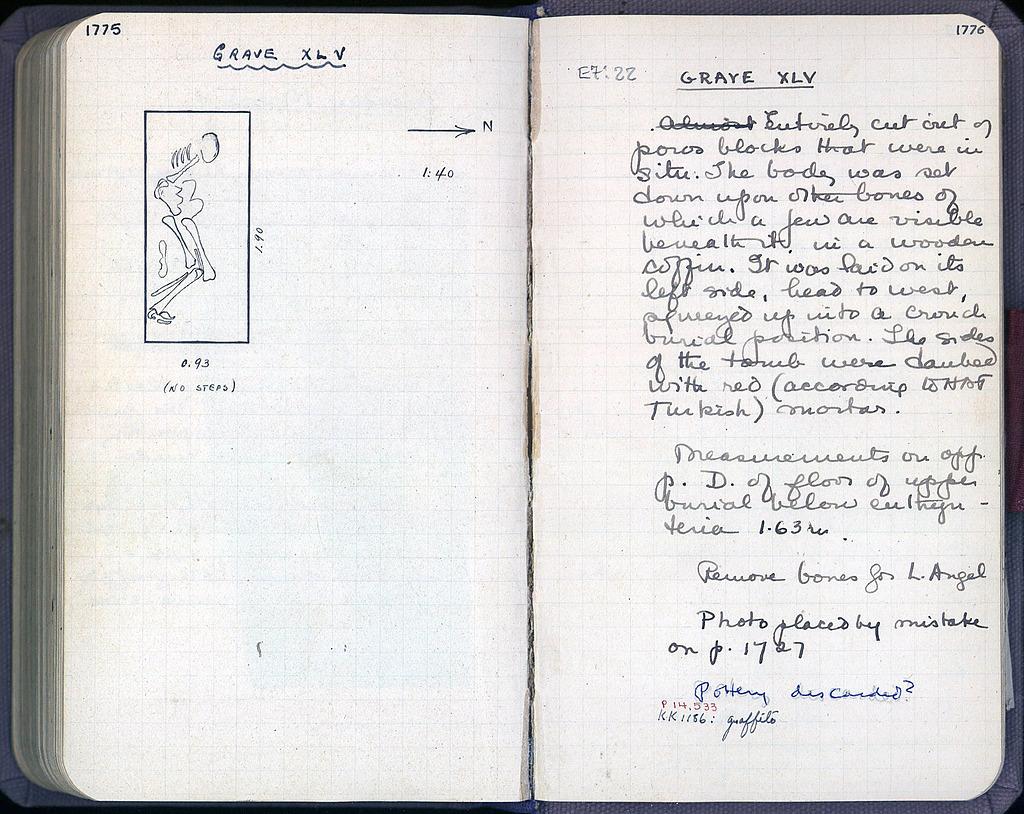 1775
GRAVE XLV
N
1:40
1.90
0.93
(NO STEPS)
1776
E7:22
GRAVE XLV
Almost Entirely cut out of
poros blocks that were in
situ. The body was set
down upon other bones of
which a few are visible
beneath it, in a wooden
coffin. It was laid on its
left side, head to west,
squeezed up into a crouch
burial position. The sides
of the tomb were daubed
with red (according to HAT
Turkish) mortar.
Measurements on opp.
p. D. of floor of upper
burial below euthyn-
teria 1.63m.
Remove bones for L. Angel
Photo placed by mistake
on p. 1727
Pottery discarded?
P 14,533
KK1186: graffito